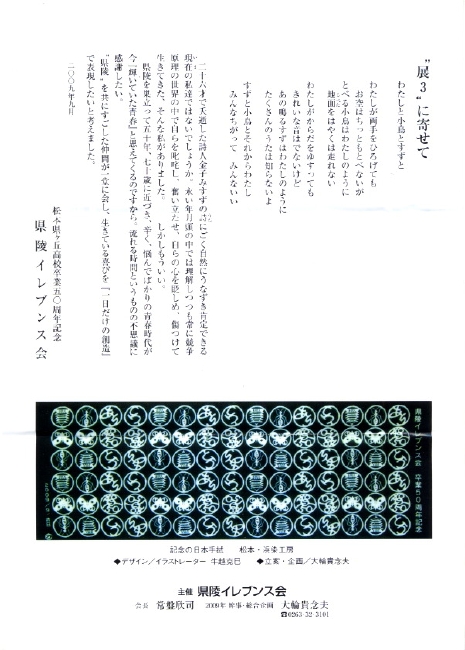 “展３”に寄せて
わたしと小鳥とすずと
わたしが両手をひろげても
お空はちっともとべないが
とべる小鳥はわたしのように
地面をはやくは走れない
わたしがからだをゆすっても
きれいな音はでないけど
あの鳴るすずはわたしのように
たくさんのうたは知らないよ
すずと小鳥とそれからわたし
みんなちがって みんないい
二十六才で夭逝した詩人金子みすずの詩にごく自然にうなずき肯定できる
現在の私達ではないでしょうか。永い年月頭の中では理解しつつも常に競争
原理の世界の中で自らを叱咤し、奮い立たせ、自らの心を貶しめ、傷つけて
生きてきた、そんな私がありました。 しかしもういい。
県陵を巣立って五十年、七十歳に近づき、辛く、悩んでばかりの青春時代が
今“輝いていた青春”と思えてくるのですから。流れる時間というものの不思議に
感謝したい。
“県陵”を共にすごした仲間が一堂に会し、生きている喜びを「一日だけの創造」
で表現したいと考えました。
二〇〇九年九月
松本県ヶ丘高校卒業五〇周年記念
県陵イレブンス会
県陵イレブンス会 卒業50周年記念
記念の日本手拭 松本・浜倭工房
◆デザイン/イラストレーター 牛越克巳 ◆立案・企画/大輪貴念夫
主催 県陵イレブンス会
会長 常盤欣司 2009年 幹事・総合企画 大輪貴念夫
☎0263-32-3101